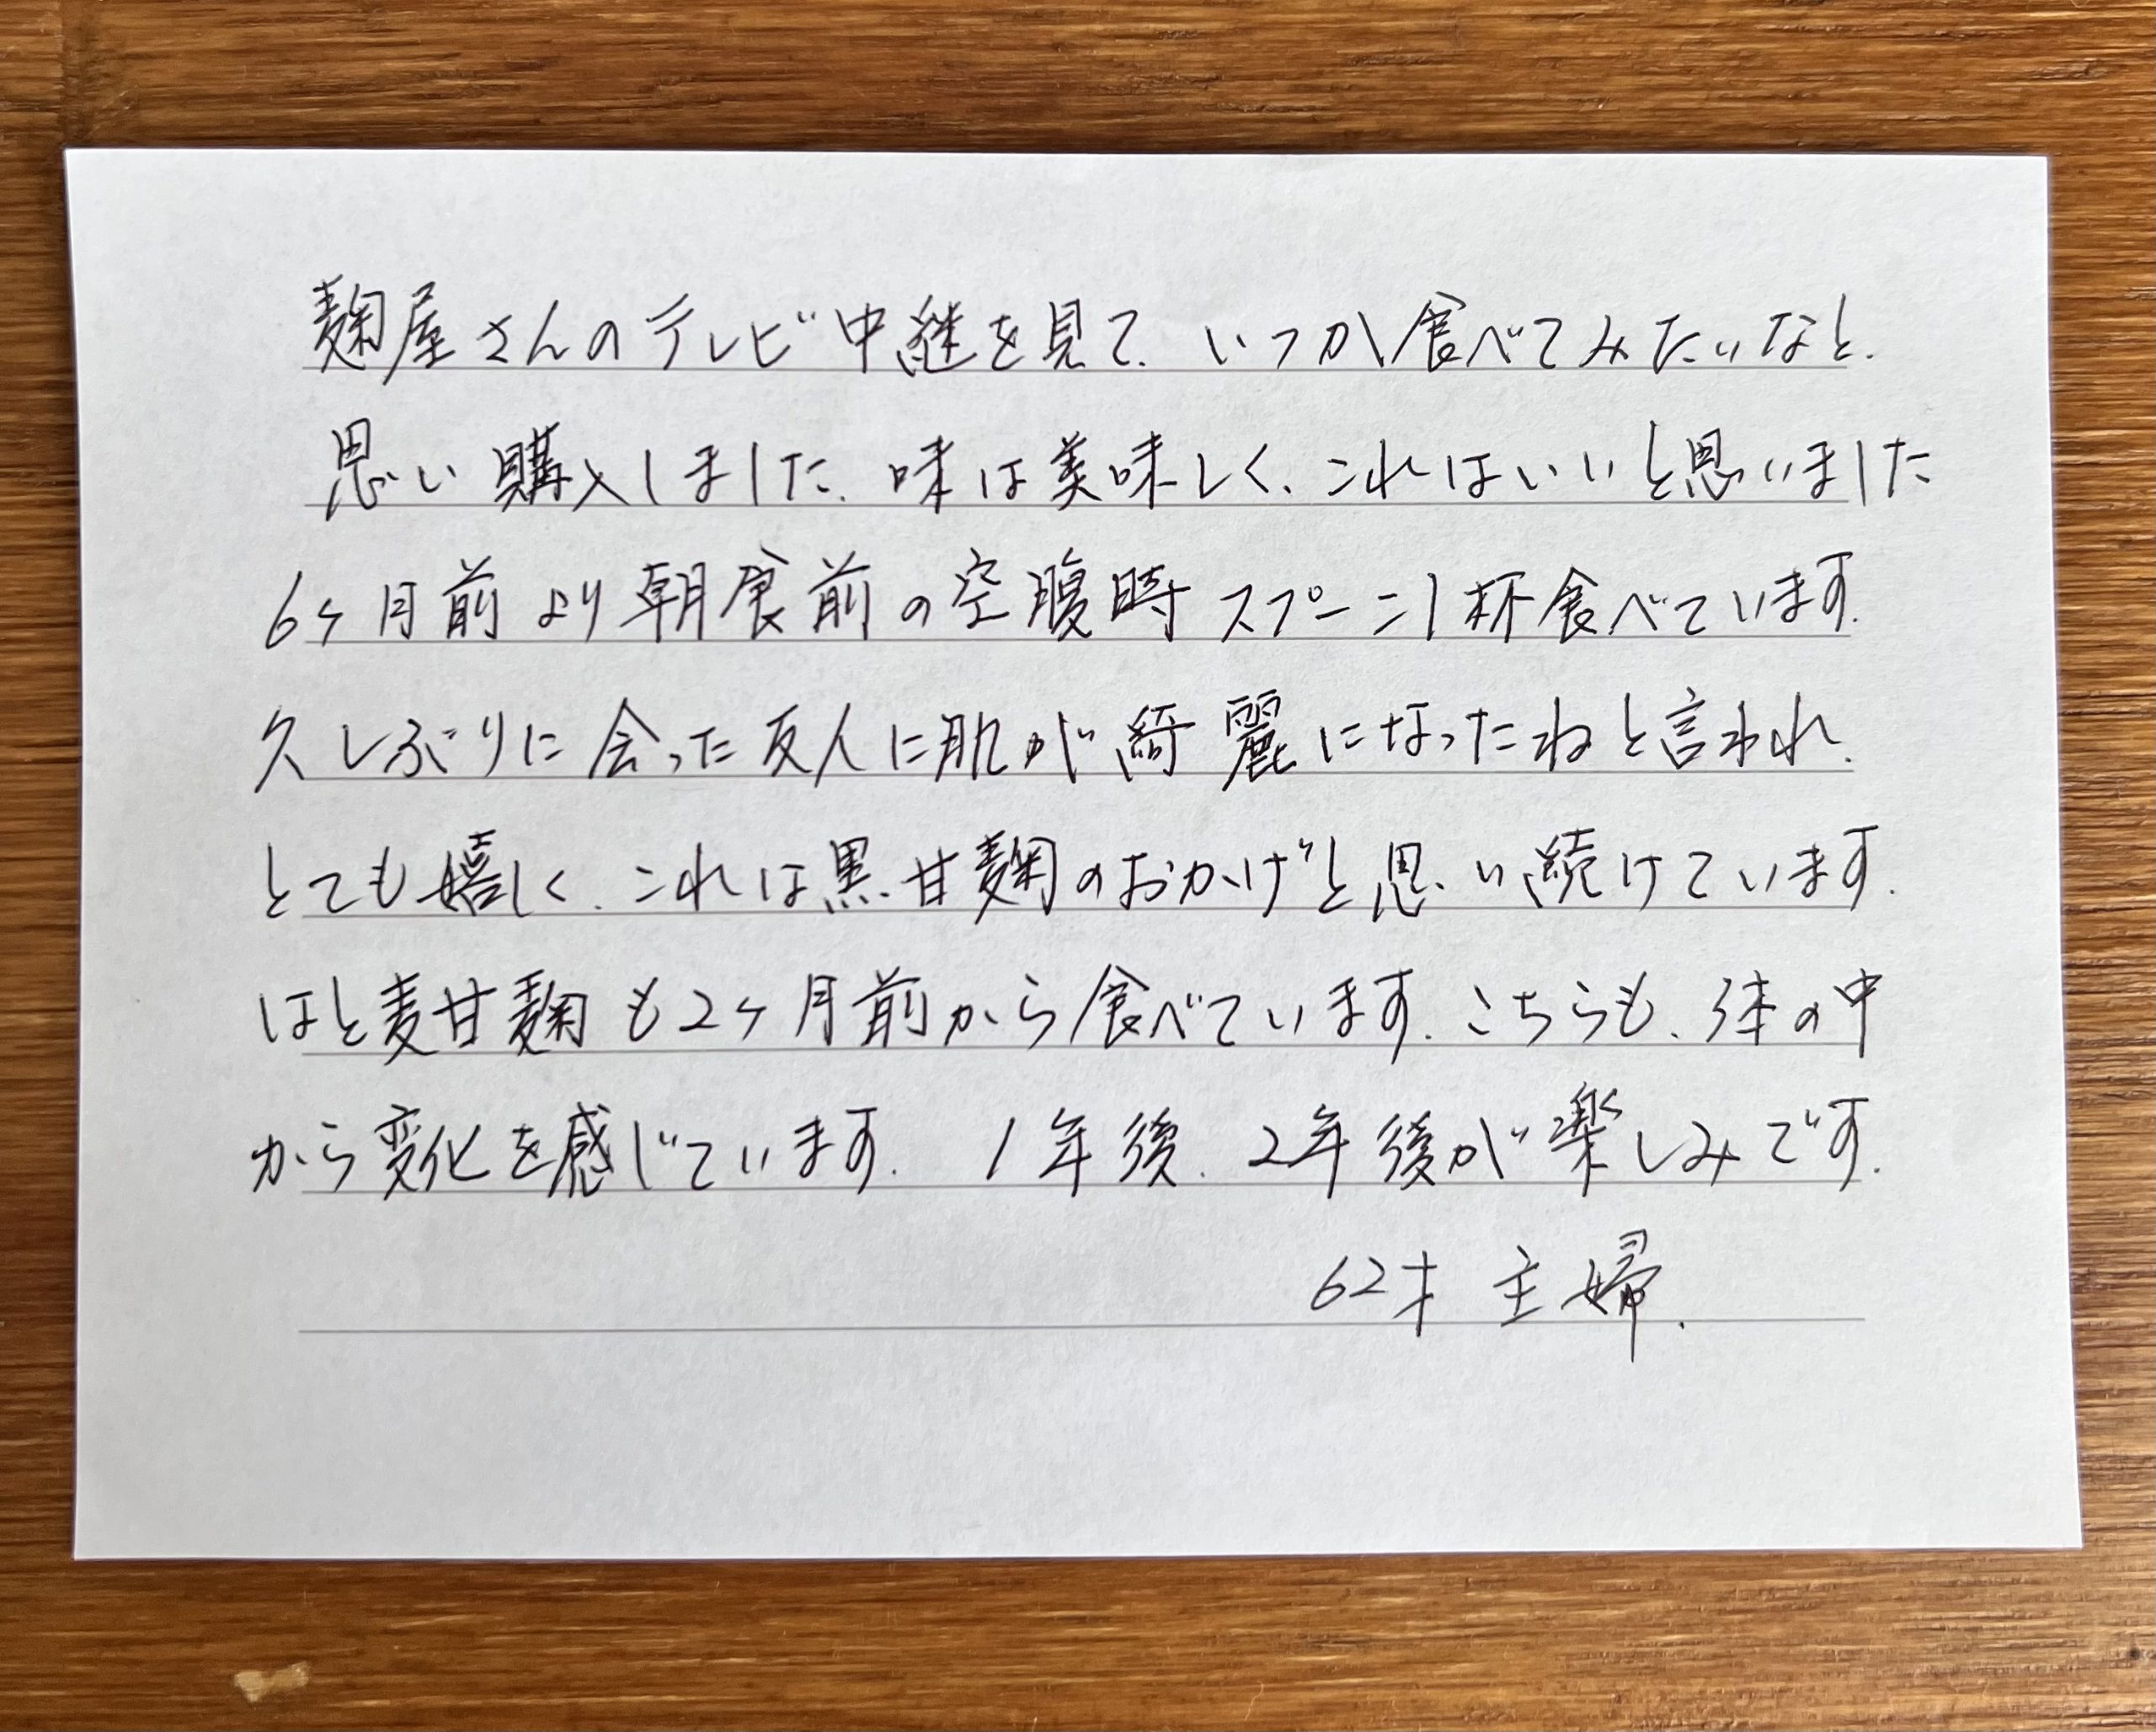 麹屋さんのテレビ中継を見て、いつか食べてみたいなと、
思い購入しました。味は美味しく、これはいいと思いました
6ヶ月前より朝食前の空腹時スプーン1杯食べています。
久しぶりに会った友人に肌が綺麗になったねと言われ、
とても嬉しく、これは黒甘麹のおかげと思い続けています。
はと麦甘麹も2ヶ月前から食べています。こちらも、体の中
から変化を感じています。 1年後、2年後が楽しみです。
62才 主婦.